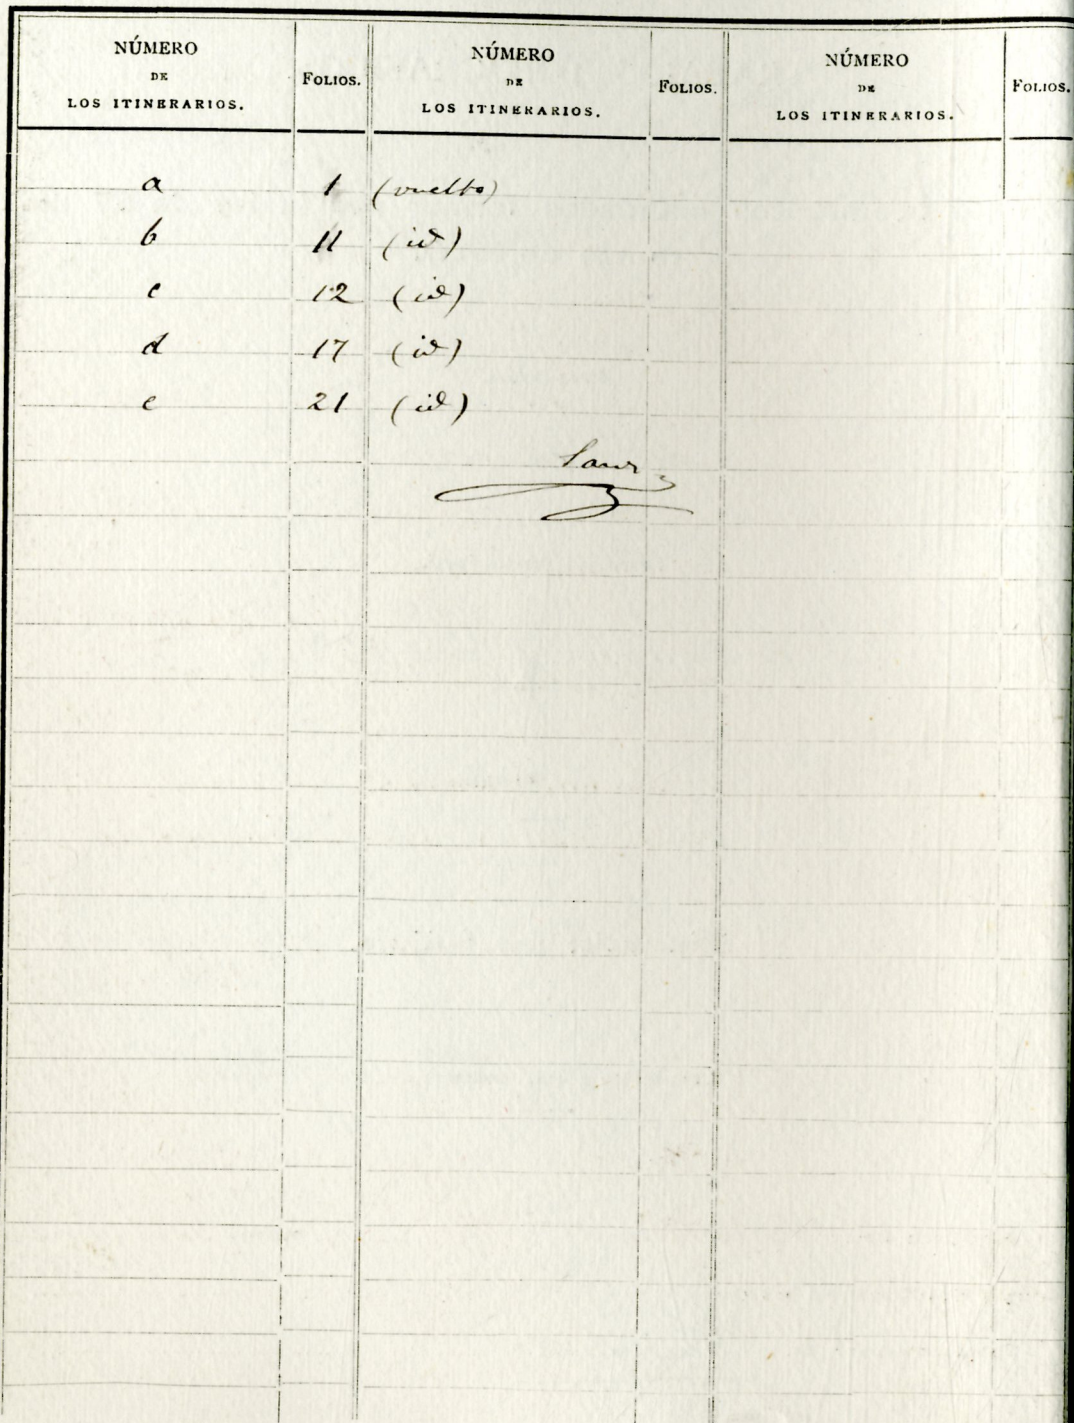 NÚMERO DE LOS ITINERARIOS. FOLIOS. NÚMERO DE LOS ITINERARIOS. FOLIOS. NÚMERO DE LOS ITINERARIOS. FOLIOS.
a 1 (vuelto)
b 11 (id)
c 12 (id)
d 17 (id)
e 21 (id)